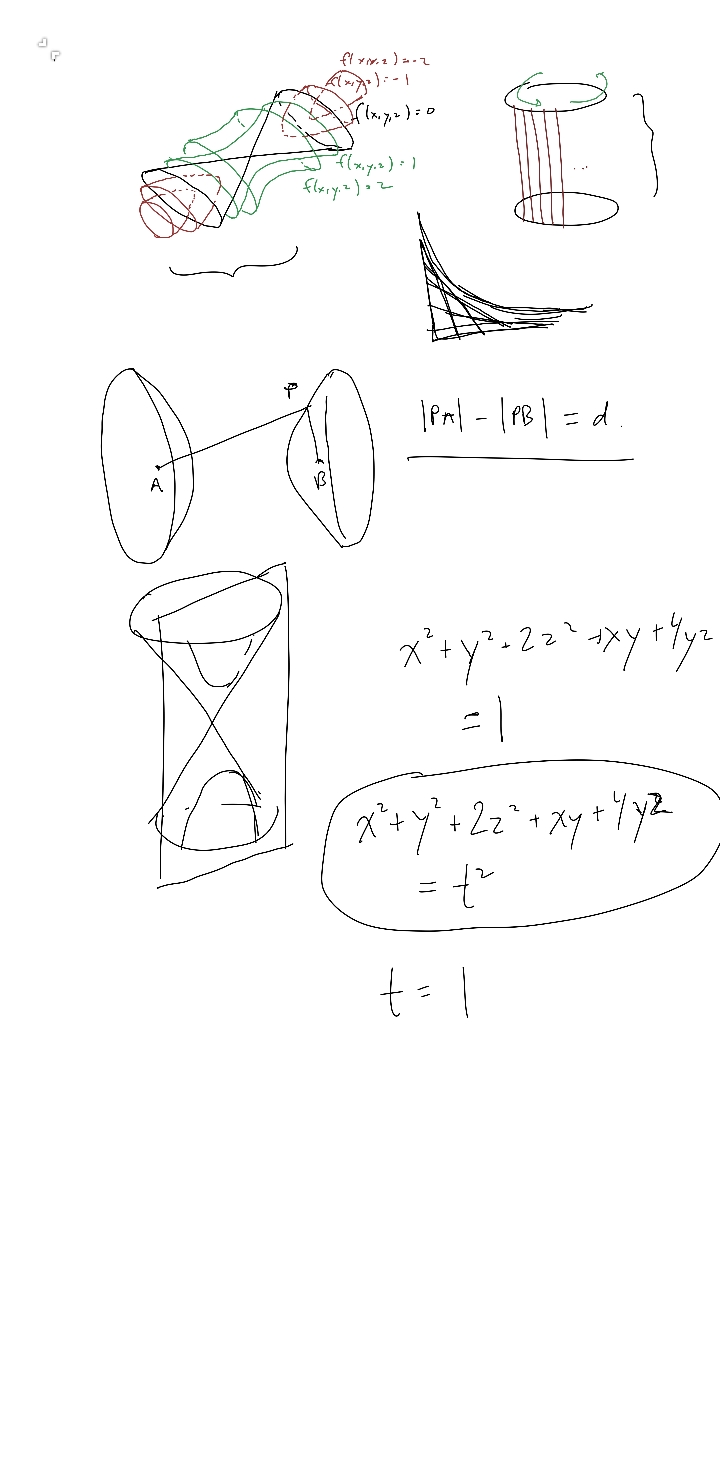 f(x,y,z)=-2
f(x,y,z)=-1
f(x,y,z)=0
f(x,y,z)=1
f(x,y,z)=2
...
P
A
B
|PA| - |PB| = d.
x²+y²+2z²+xy+4yz
=1
x²+y²+2z²+xy+4yz
= t²
t = 1